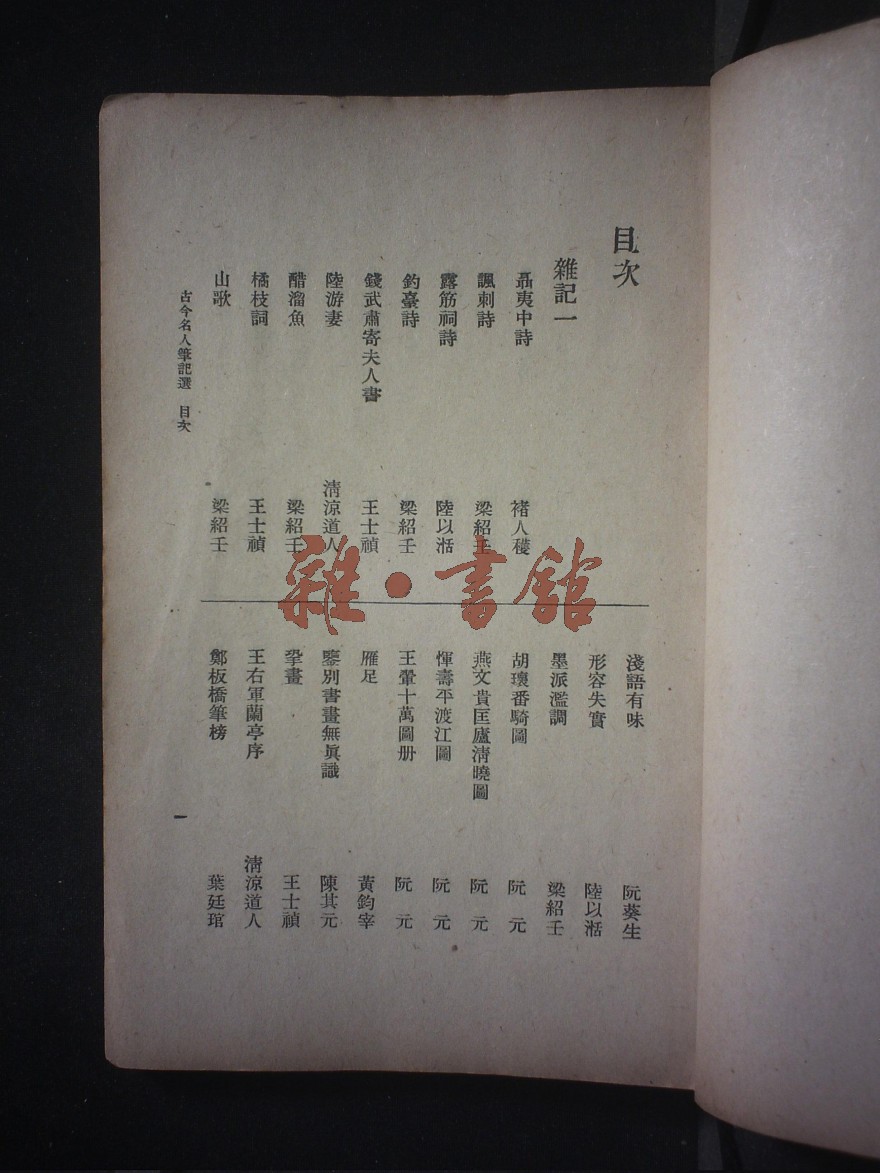 目次
雜記一
聶夷中詩 褚人穫
諷刺詩 梁紹壬
露筋祠詩 陸以湉
釣臺詩 梁紹壬
錢武肅寄夫人書 王士禎
陸游妻 清涼道人
醋溜魚 梁紹壬
橘枝詞 王士禎
山歌 梁紹壬
淺語有味 阮葵生
形容失實 陸以湉
墨派濫調 梁紹壬
胡瓌番騎圖 阮元
燕文貴匡廬清曉圖 阮元
惲壽平渡江圖 阮元
王翬十萬圖册 阮元
雁足 黃鈞宰
鑒別書畫無眞識 陳其元
挐畫 王士禎
王右軍蘭亭序 清涼道人
鄭板橋筆榜 葉廷琯
古今名人筆記選 目次
一
雜·書館